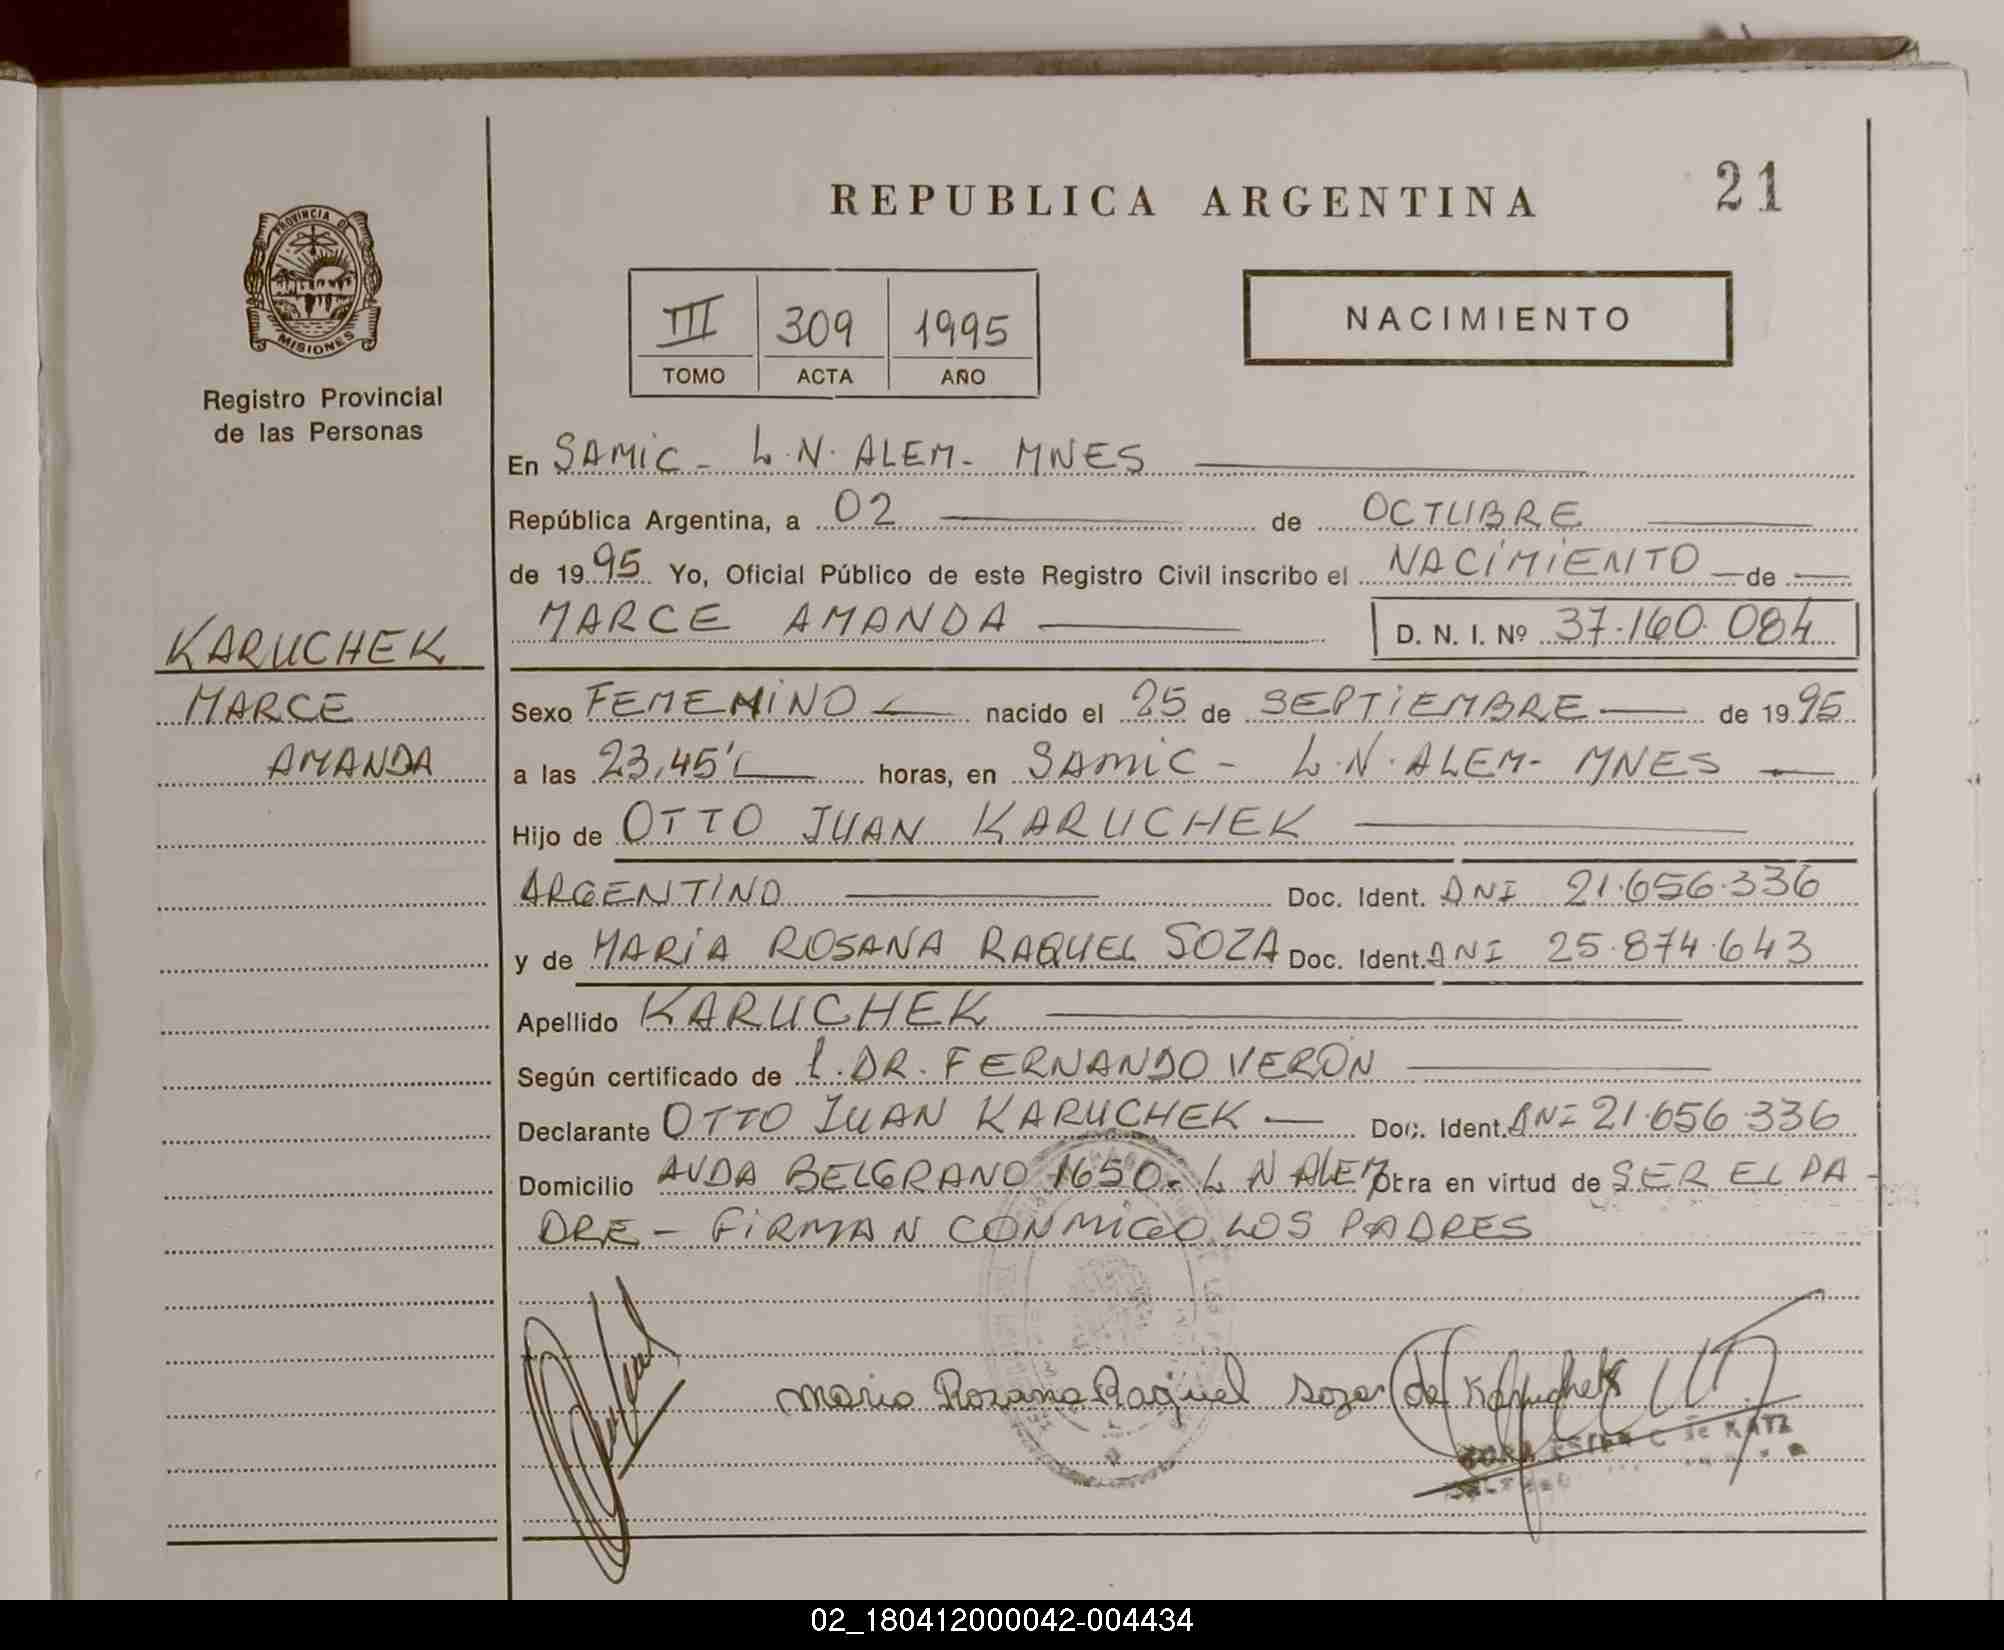 PROVINCIA DE
MISIONES
Registro Provincial
de las Personas
KARUCHEK
MARCE
AMANDA
REPUBLICA ARGENTINA
21
III 309 1995
TOMO ACTA AÑO
NACIMIENTO
En SAMIC - L.N. ALEM - MNES
República Argentina, a 02 de OCTUBRE
de 1995 Yo, Oficial Público de este Registro Civil inscribo el NACIMIENTO de
MARCE AMANDA D. N. I. Nº 37.160.084
Sexo FEMENINO nacido el 25 de SEPTIEMBRE de 1995
a las 23,45' horas, en SAMIC - L.N. ALEM - MNES
Hijo de OTTO JUAN KARUCHEK
ARGENTINO Doc. Ident. DNI 21.656.336
y de MARIA ROSANA RAQUEL SOZA Doc. Ident. DNI 25.874.643
Apellido KARUCHEK
Según certificado de l. DR. FERNANDO VERON
Declarante OTTO JUAN KARUCHEK Doc. Ident. DNI 21.656.336
Domicilio AVDA BELGRANO 1650 - L N ALEM Obra en virtud de SER EL PA-
DRE - FIRMAN CONMIGO LOS PADRES
Maria Rosana Raquel Soza de Karuchek
C de KATZ
02_180412000042-004434